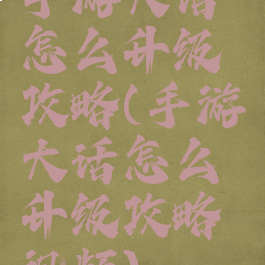 手游大话
怎么升级
攻略(手游
大话怎么
升级攻略
视频)